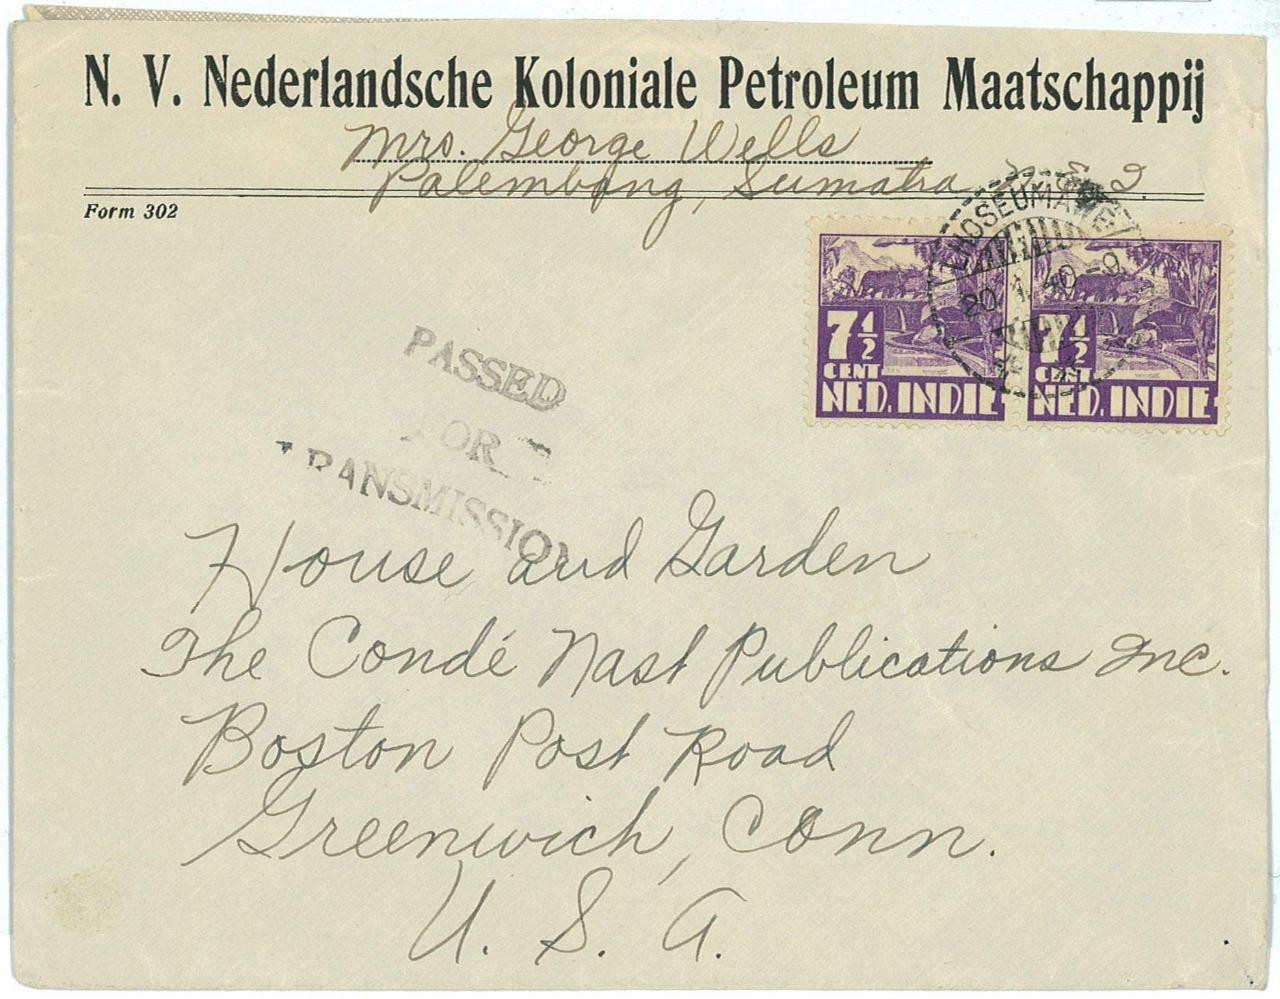 N. V. Nederlandsche Koloniale Petroleum Maatschappij
Mrs. George Wells
Palembang, Sumatra
Form 302
LHOSEUMAWE
20. 1. 40 - 9
7 1/2
CENT
NED. INDIE
7 1/2
CENT
NED. INDIE
PASSED
FOR
TRANSMISSION
House and Garden
The Condé Nast Publications Inc.
Boston Post Road
Greenwich, Conn.
U. S. A.